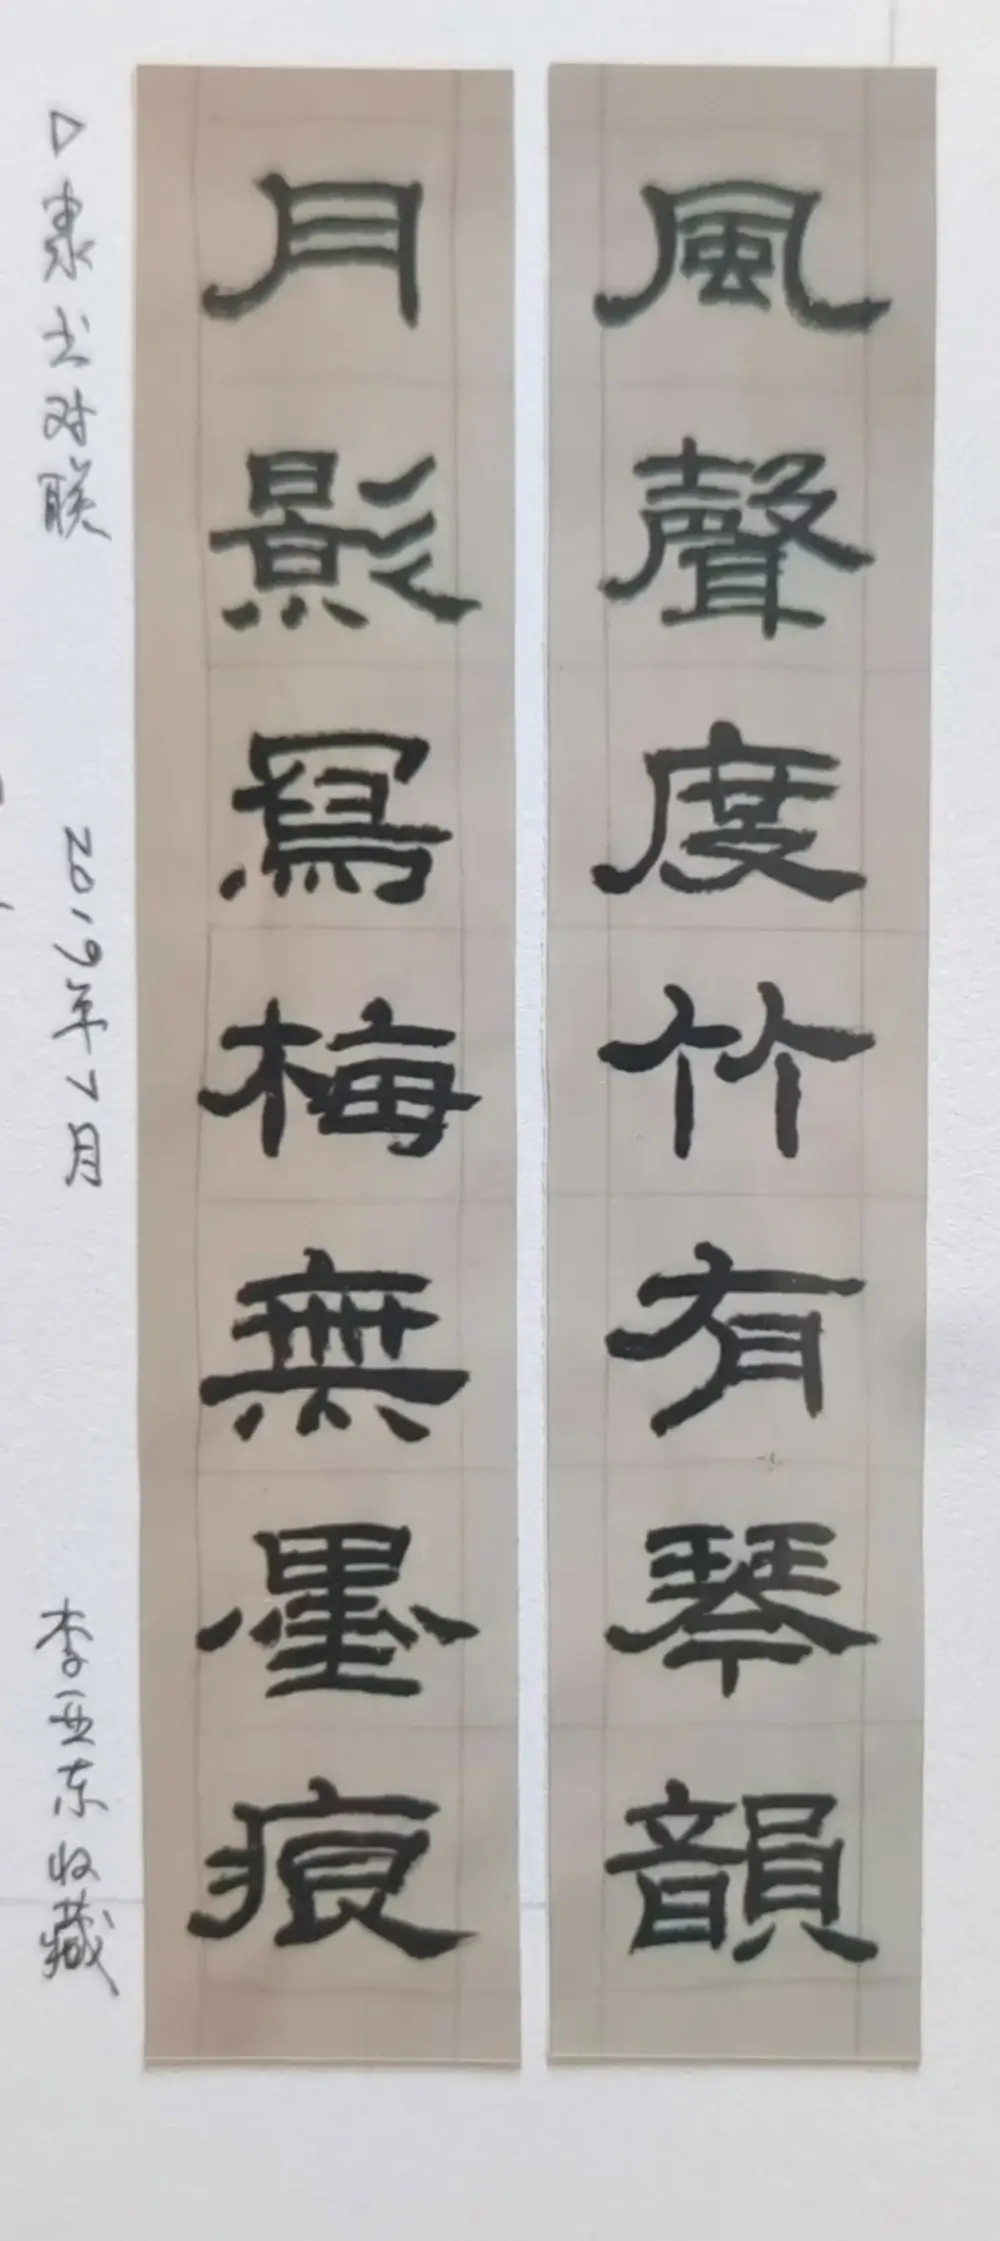 風聲度竹有琴韻
月影寫梅無墨痕
▷隶书对联
2019年7月
李亚东收藏